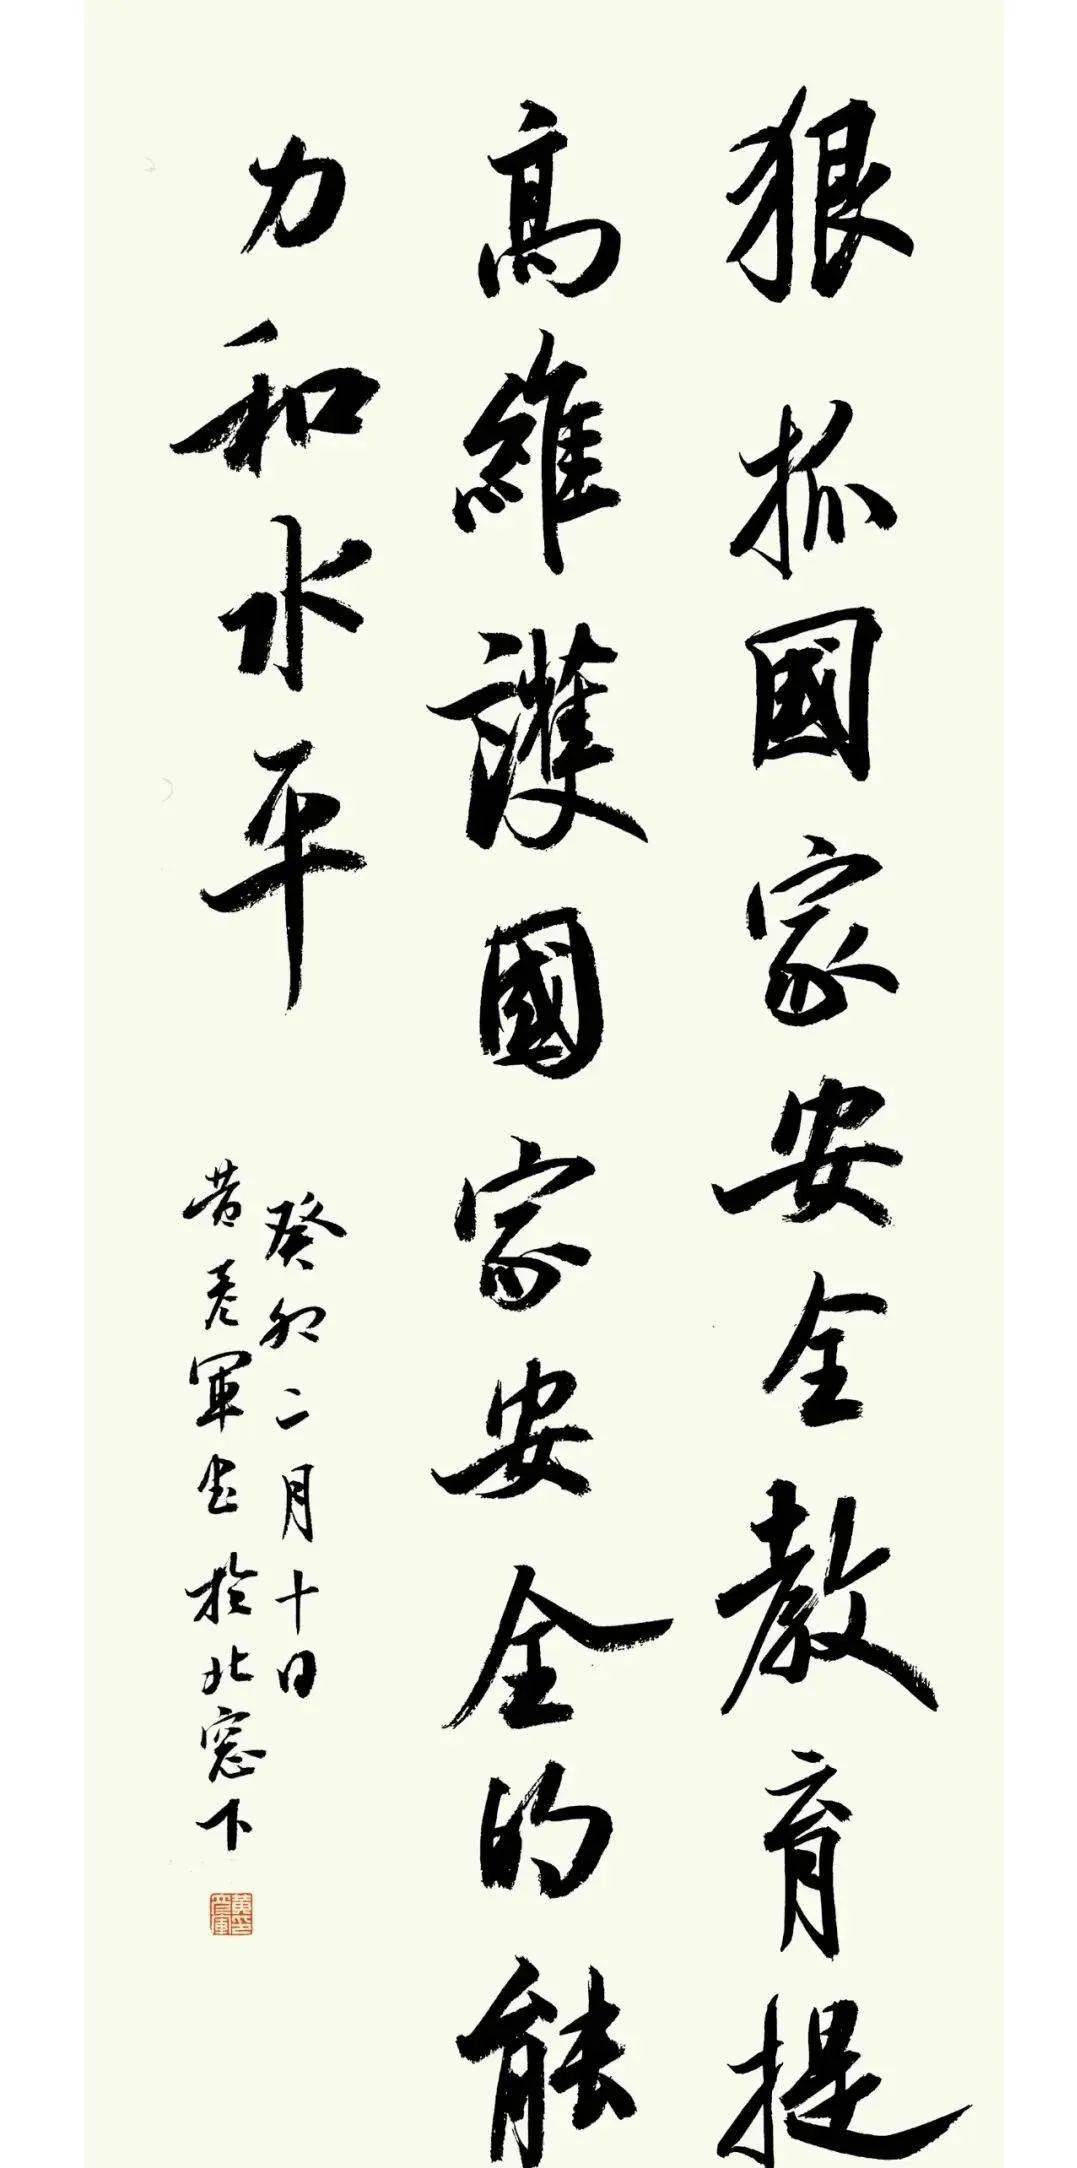 狠抓國家安全教育提
高維護國家安全的能
力和水平
癸卯二月十日
黄彥軍書於北窓下